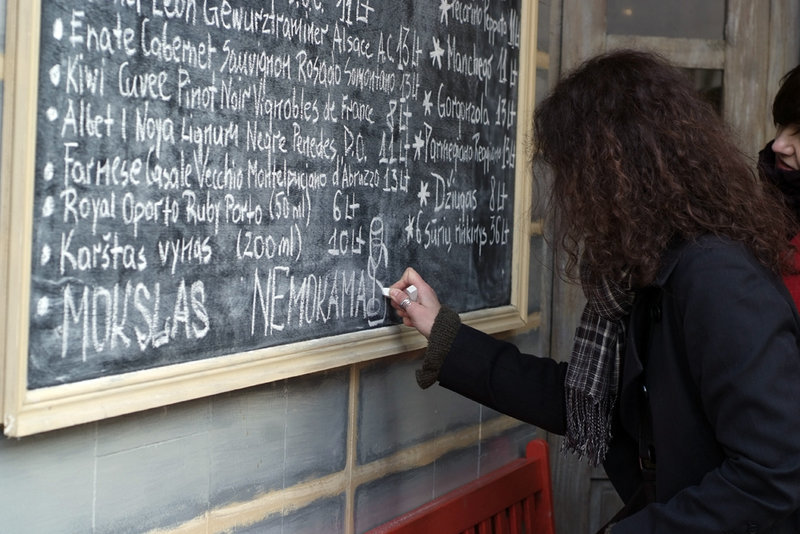 Leon Gewurztraminer Alsace A.C. 11 Lt
• Enate Cabernet Sauvignon Rosado Somontano 13 Lt
• Kiwi Cuvee Pinot Noir Vignobles de France 8 Lt
• Albet I Noya Lignum Negre Penedes D.O. 11 Lt
• Farnese Casale Vecchio Montelpuciano d'Abruzzo 13 Lt
• Royal Oporto Ruby Porto (50 ml) 6 Lt
• Karštas vynas (200 ml) 10 Lt
• MOKSLAS NEMOKAMA
* Pecorino Pepato 11 Lt
* Manchego 11 Lt
* Gorgonzola 13 Lt
* Parmegiano Reggiano 13 Lt
* Džiugas 8 Lt
* 6 sūrių rinkinys 36 Lt